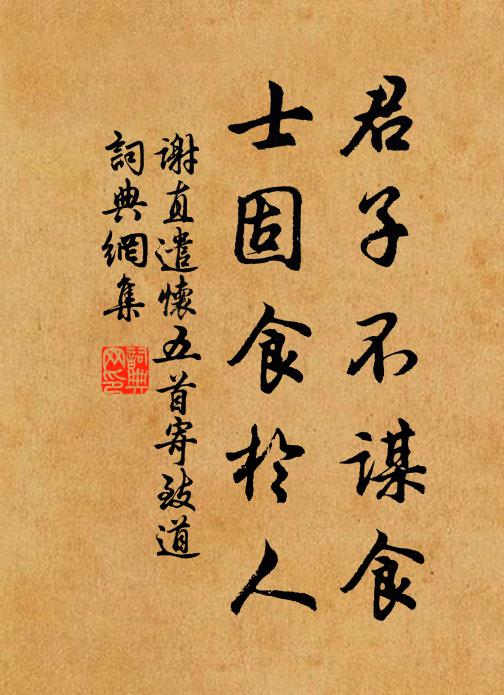 君子不謀食
士固食於人
謝直遣懷五首寄致道
詞典網集
詞典網印